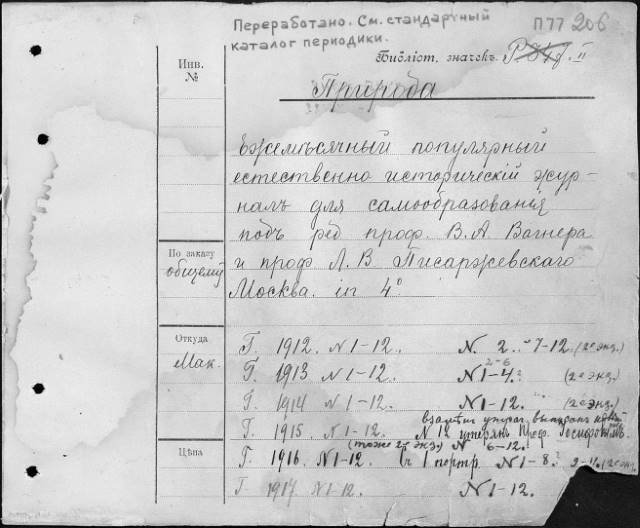 Переработано. См. стандартный
каталог периодики.
П77 206
Библіот. значекъ.
Инв.
№
Природа
Ежемѣсячный популярный
естественно историческій жур-
налъ для самообразованія
подъ ред проф. В.А. Вагнера
и проф Л. В Писаржевскаго
Москва. in 4°
По заказу
общему
Откуда
Мак.
Цѣна
Г. 1912. N 1-12. N. 2. -7-12. (2е экз.)
2-6
Г. 1913 N 1-12. N 1-4. (2е экз.)
Г. 1914 N 1-12. N 1-12. (2е экз.)
взамѣн утрач.
Г. 1915 N 1-12. N 12 утерян Проф.
(тоже 2й экз.) N 6-12.
Г. 1916. N 1-12. (ъ 1 портр. N 1-8.
Г 1917 N 1-12. N 1-12.